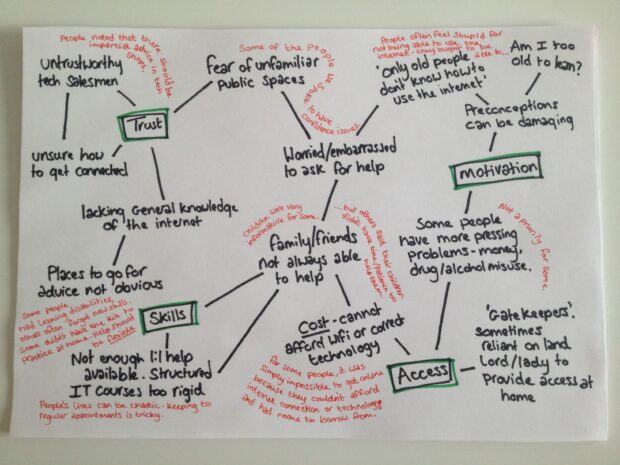 People noted that there
should be
impartial advice in tech
shops.
untrustworthy
tech salesmen
Trust
unsure how
to get connected
Some of the people we spoke
to have
confidence issues.
fear of unfamiliar
public spaces
People often feel stupid for
not being able to use the
internet - they ought to be
able to...
'only old people
don't know how to
use the internet'
Am I too
old to learn?
Preconceptions
can be damaging
Worried/embarrassed
to ask for help
Motivation
lacking General knowledge
of the internet
Places to go for
advice not obvious
Children were very
informative for some...
...but others said their children
didn't have time/patience to
help them.
family/friends
not always able
to help
Some people
have more pressing
problems - money,
drug/alcohol misuse.
Not a priority for some.
Some people
had learning disabilities,
others often forget new skills.
Some didn't have the kit to
practice at home. Help should
be flexible
Skills
Not enough 1:1 help
available. Structured
IT courses too rigid
People's lives can be chaotic - keeping to
regular appointments is tricky.
Cost - cannot
afford wifi or correct
technology
for some people, it was
simply impossible to get online
because they couldn't afford
internet connection or technology
and had noone to borrow from.
Access
'Gatekeepers'.
sometimes
reliant on land
Lord/lady to
provide access at
home